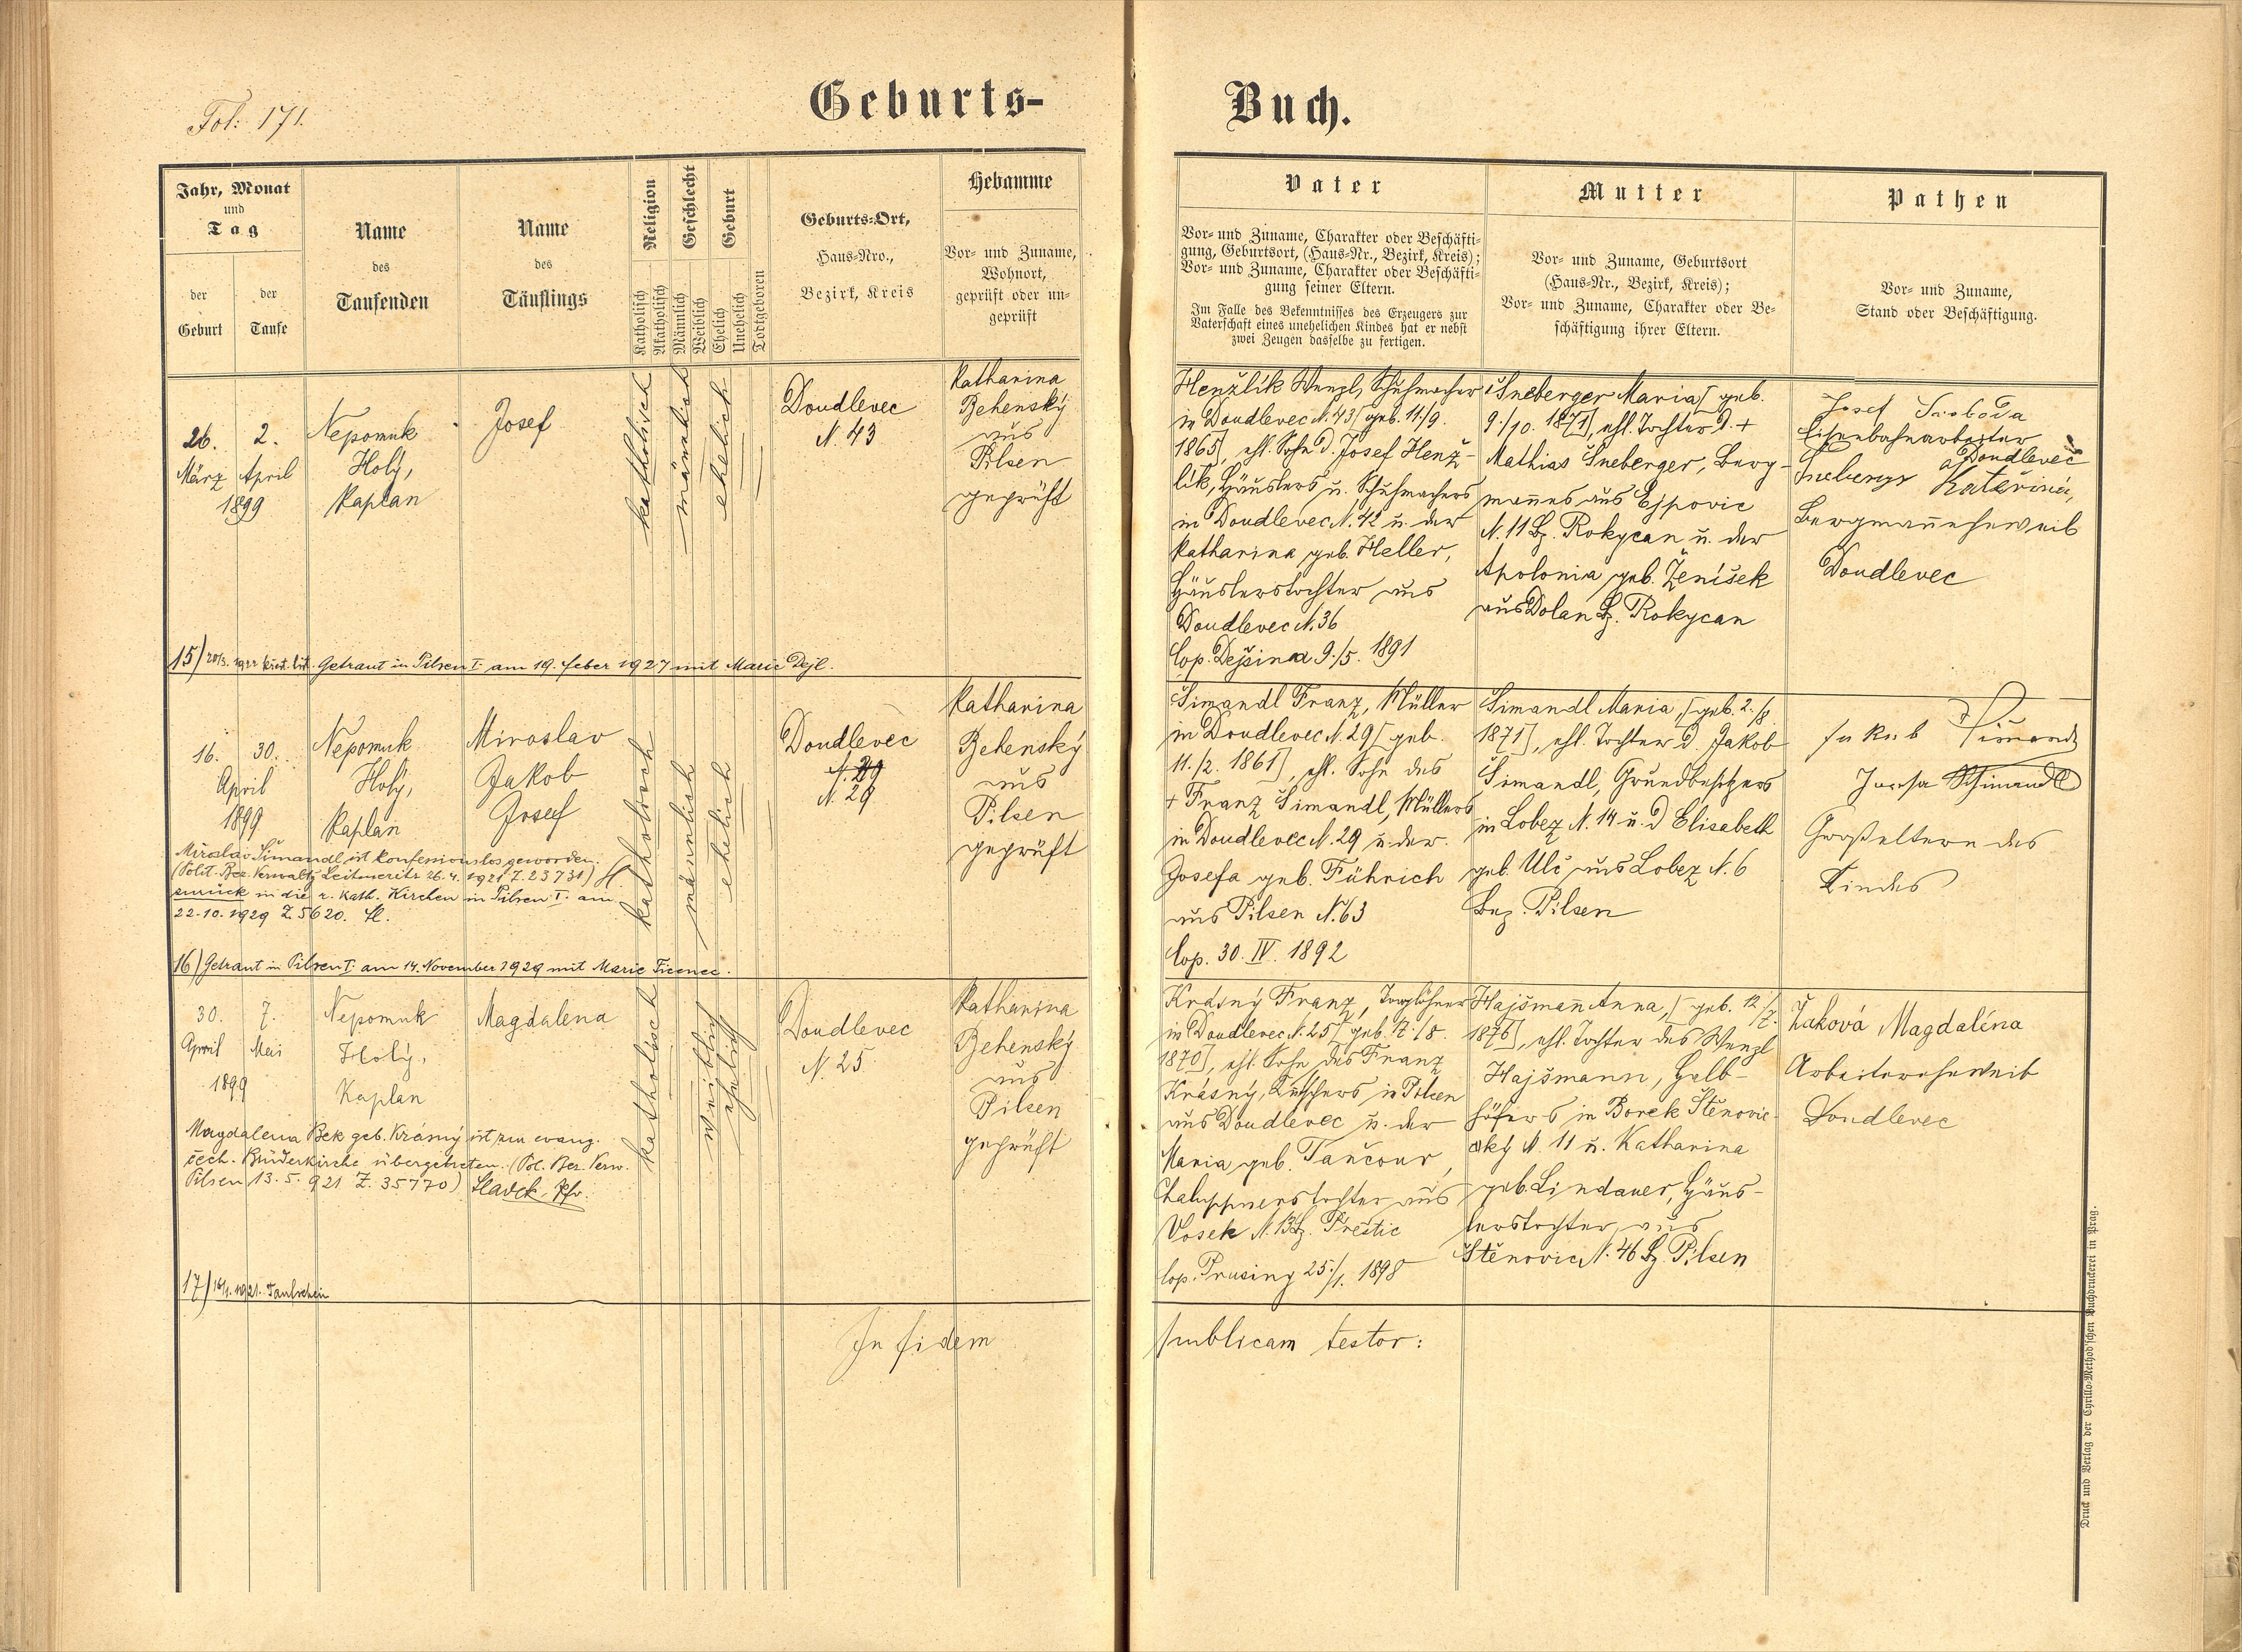 Fol: 171.
Geburts-
Buch.
Jahr, Monat
und
Tag
der
Geburt
der
Taufe
Name
des
Taufenden
Name
des
Täuflings
Religion
Katholisch
Akatholisch
Geschlecht
Männlich
Weiblich
Geburt
Ehelich
Unehelich
Todtgeboren
Geburts-Ort,
Haus-Nro.,
Bezirk, Kreis
Hebamme
Vor- und Zuname,
Wohnort,
geprüft oder un-
geprüft
Vater
Vor- und Zuname, Charakter oder Beschäfti-
gung, Geburtsort, (Haus-Nr., Bezirk, Kreis);
Vor- und Zuname, Charakter oder Beschäfti-
gung seiner Eltern.
Im Falle des Bekenntnisses des Erzeugers zur
Vaterschaft eines unehelichen Kindes hat er nebst
zwei Zeugen dasselbe zu fertigen.
Mutter
Vor- und Zuname, Geburtsort
(Haus-Nr., Bezirk, Kreis);
Vor- und Zuname, Charakter oder Be-
schäftigung ihrer Eltern.
Pathen
Vor- und Zuname,
Stand oder Beschäftigung.
26.
März
2.
April
1899
Nepomuk
Holý,
Kaplan
Josef
katholisch
männlich
ehelich
Doudlevec
N. 43
Katharina
Behenský
aus
Pilsen
geprüft
Henžlík Wenzl, Schuhmacher
in Doudlevec N. 43 [geb. 11/9.
1865], ehl. Sohn d. Josef Henž-
lík, Häuslers u. Schuhmachers
in Doudlevec N. 42 u. der
Katharina geb. Heller,
Häuslerstochter aus
Doudlevec N. 36
Cop. Dejšina 9./5. 1891
Šneberger Maria [geb.
9./10. 1871], ehl. Tochter d. +
Mathias Šneberger, Berg-
mannes aus Ejpovic
N. 11 Bz. Rokycan u. der
Apolonia geb. Ženíšek
aus Dolan Bz. Rokycan
Josef Svoboda
Eisenbahnarbeiter
Doudlevec
Kateřina,
Bergmannsheweib
Doudlevec
15) 20/3. 1922 Getraut in Pilsen I. am 19. Feber 1927 mit Marie Dejl.
16.
30.
April
1899
Nepomuk
Holý,
Kaplan
Miroslav
Jakob
Josef
katholisch
männlich
ehelich
Doudlevec
N. 29
Katharina
Behenský
aus
Pilsen
geprüft
Šimandl Franz, Müller
in Doudlevec N. 29 [geb.
11./2. 1861], ehl. Sohn des
+ Franz Šimandl, Müllers
in Doudlevec N. 29 u. der
Josefa geb. Führich
aus Pilsen N. 63
Cop. 30. IV. 1892
Šimandl Maria, [geb. 2./8.
1871], ehl. Tochter d. Jakob
Šimandl, Grundbesitzers
in Lobez N. 14 u. d Elisabeth
geb. Ulč aus Lobez N. 6
Bez. Pilsen
Jakub
Schimandl
Großeltern des
Kindes
Miroslav Šimandl ist konfessionslos geworden.
(Polit. Bez. Verwaltg Leitmeritz 26. 4. 1921 Z. 23731)
zurück in die r. kath. Kirchen in Pilsen I. am
22.10.1929 Z. 5620.
16) Getraut in Pilsen I. am 14. November 1929 mit Marie Ticenec.
30.
April
7.
Mai
1899
Nepomuk
Holý,
Kaplan
Magdalena
katholisch
weiblich
ehelich
Doudlevec
N. 25
Katharina
Behenský
aus
Pilsen
geprüft
Krásný Franz, Taglöhner
in Doudlevec N. 25 [geb. 7./8.
1870], ehl. Sohn des Franz
Krásný, Kutschers in Pilsen
aus Doudlevec u. der
Maria geb. Tančour,
Chaluppnerstochter aus
Vosek N. 13 Bz. Přeštic
Cop. Prusiny 25./1. 1898
Hajšmann Anna, [geb. 12/7.
1876], ehl. Tochter des Wenzl
Hajšmann, Halb-
höfers in Borek Štěnovic-
ský N. 11 u. Katharina
geb. Lindauer, Häus-
lerstochter aus
Štěnovic N. 46 Bz. Pilsen
Žaková Magdaléna
Arbeitersheweib
Doudlevec
Magdalena Bek geb. Krásný ist zur evang.
čech. Brüderkirche übergetreten. (Pol. Bez. Verw.
Pilsen 13. 5. 921 Z. 35770)
17) 16/1. 1921. Taufschein
In fidem
publicam testor:
Druck und Verlag der Cyrillo-Method'schen Buchdruckerei in Prag.